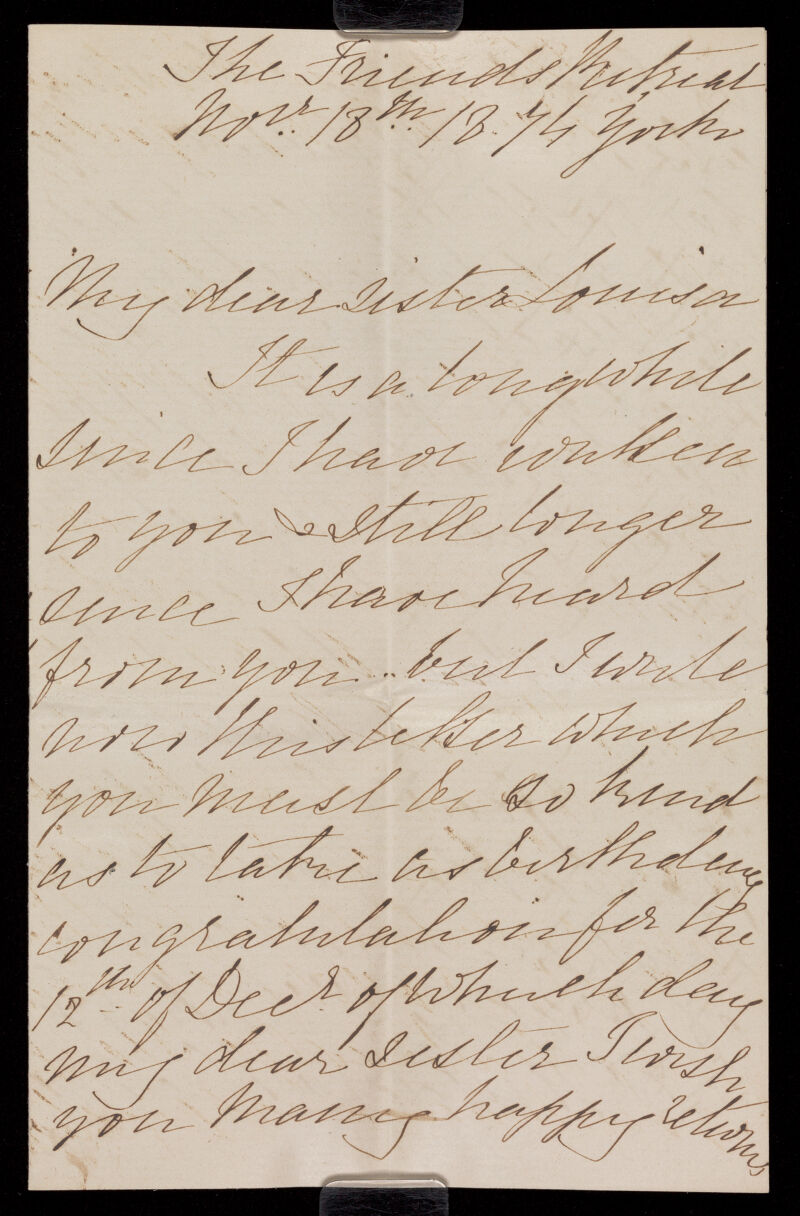 The Friends Retreat
Novr. 18th 1874 York
My dear sister Louisa
It is a long while
since I have written
to you & still longer
since I have heard
from you but I write
now this letter which
you must be so kind
as to take as birthday
congratulation for the
12th of Decr. of which day
my dear sister I wish
you many happy returns